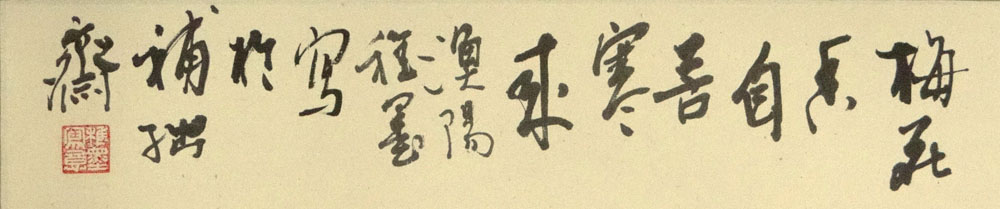 梅花
香
自
苦
寒
來
陽
墨
寫
於
補拙
齋